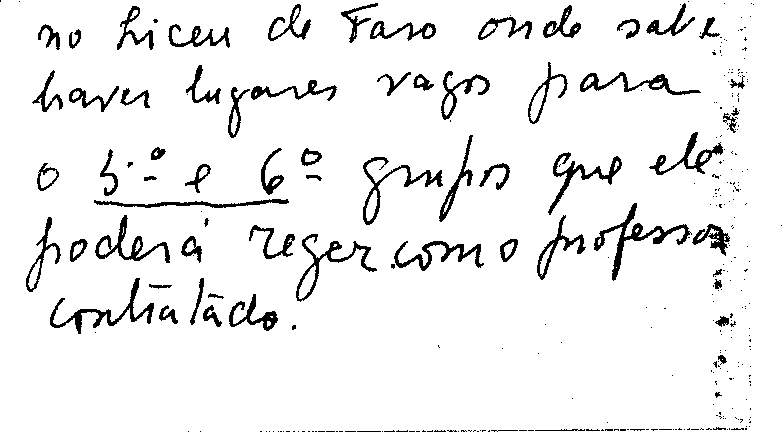 no Liceu de Faro onde sabe
haver lugares vagos para
o 5.º e 6º grupos que ele
poderá reger como professor
contratado.